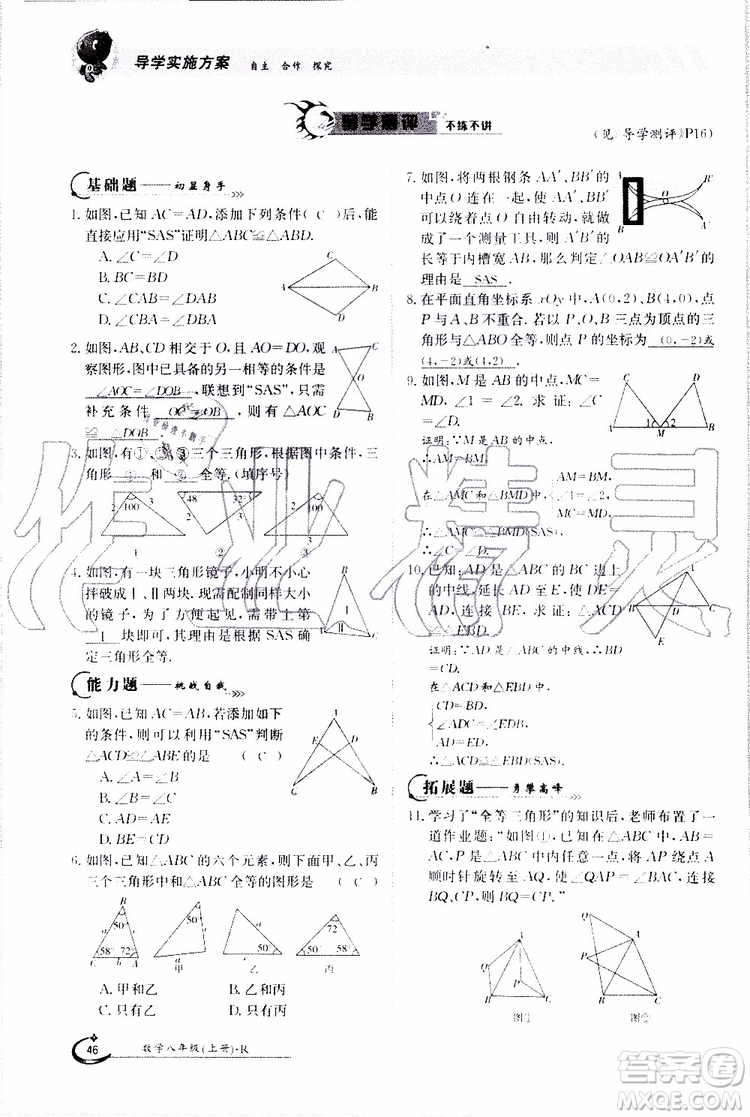 导学实施方案 自主 合作 探究
导学测评 不练不讲
(见《导学测评》P16)
基础题——初显身手
1. 如图,已知 AC=AD,添加下列条件 ( C )后,能
直接应用“SAS”证明△ABC≌△ABD.
A. ∠C=∠D
B. BC=BD
C. ∠CAB=∠DAB
D. ∠CBA=∠DBA
2. 如图, AB,CD 交于点 O,且 AO=DO,观
察图形,图中已具备的另一相等的条件是
∠AOC=∠DOB ,联想“SAS”,只需
补充条件 OC=OB ,则有△AOC
≌△DOB.
3. 如图,有①、②、③三个三角形,根据图中条件,三
角形 ① 和 ② 全等.(填序号)
2 100 2
1
48 32 2
2
100
2 2
3
4. 如图,有一块三角形镜子,小明不小心
摔破成Ⅰ、Ⅱ两块,现需配制同样大小
的镜子,为了方便起见,需带上第
Ⅰ 块即可,其理由是根据 SAS 确
定三角形全等.
Ⅱ
能力题——挑战自我
5. 如图,已知 AC=AB,若添加如下
的条件,则可以利用“SAS”判断
△ACD≌△ABE的是 ( C )
A. ∠B=∠C
B. ∠D=∠E
C. AD=AE
D. AC=AE
6. 如图,已知△ABC的六个元素,则下面甲、乙、丙
三个三角形中和△ABC全等的图形是 ( C )
B 50° 58° 72° A b C
50° 甲
50° 乙
72° 50° 丙
A. 甲和乙 B. 乙和丙
C. 只有乙 D. 只有丙
46 数学八年级(上册)·R
7. 如图,将两根钢条 AA′、BB′的
中点 O 连在一起,使 AA′、BB′
可以绕着点 O 自由转动,就做
成了一个测量工具,则 A′B′的
长等于内槽宽 AB,那么判定△OAB≌△OA′B′的
理由是 SAS .
8. 在平面直角坐标系 xOy 中,A(0,2),B(4,0),点
P与A、B不重合.若以P、O、B三点为顶点的三
角形与△ABO全等,则点P的坐标为 (0,-2)或
(4,-2)或(4,2).
9. 如图,M 是 AB 的中点,MC=
MD,∠1=∠2.求证:∠C=∠D.
证明:∵M是AB的中点,
∴AM=BM.
在△AMC和△BMD中,
AM=BM,
∠1=∠2,
MC=MD,
∴△AMC≌△BMD(SAS).
∴∠C=∠D.
10. 已知:AD是△ABC的BC边上
的中线,延长AD至E,使DE=
AD,连接BE,求证:△ACD
≌△EBD.
证明:∵AD是△ABC的中线,∴BD
=CD.
在△ACD和△EBD中,
CD=BD,
∠ADC=∠EDB,
AD=ED,
∴△ACD≌△EBD(SAS).
拓展题——勇攀高峰
11. 学习了“全等三角形”的知识后,老师布置了一
道作业题:“如图①,已知在△ABC中,AB=
AC,P是△ABC内任意一点,将AP绕点A
顺时针旋转至AQ,使∠QAP=∠BAC,连接
BQ、CP,则BQ=CP.”
图① 图②